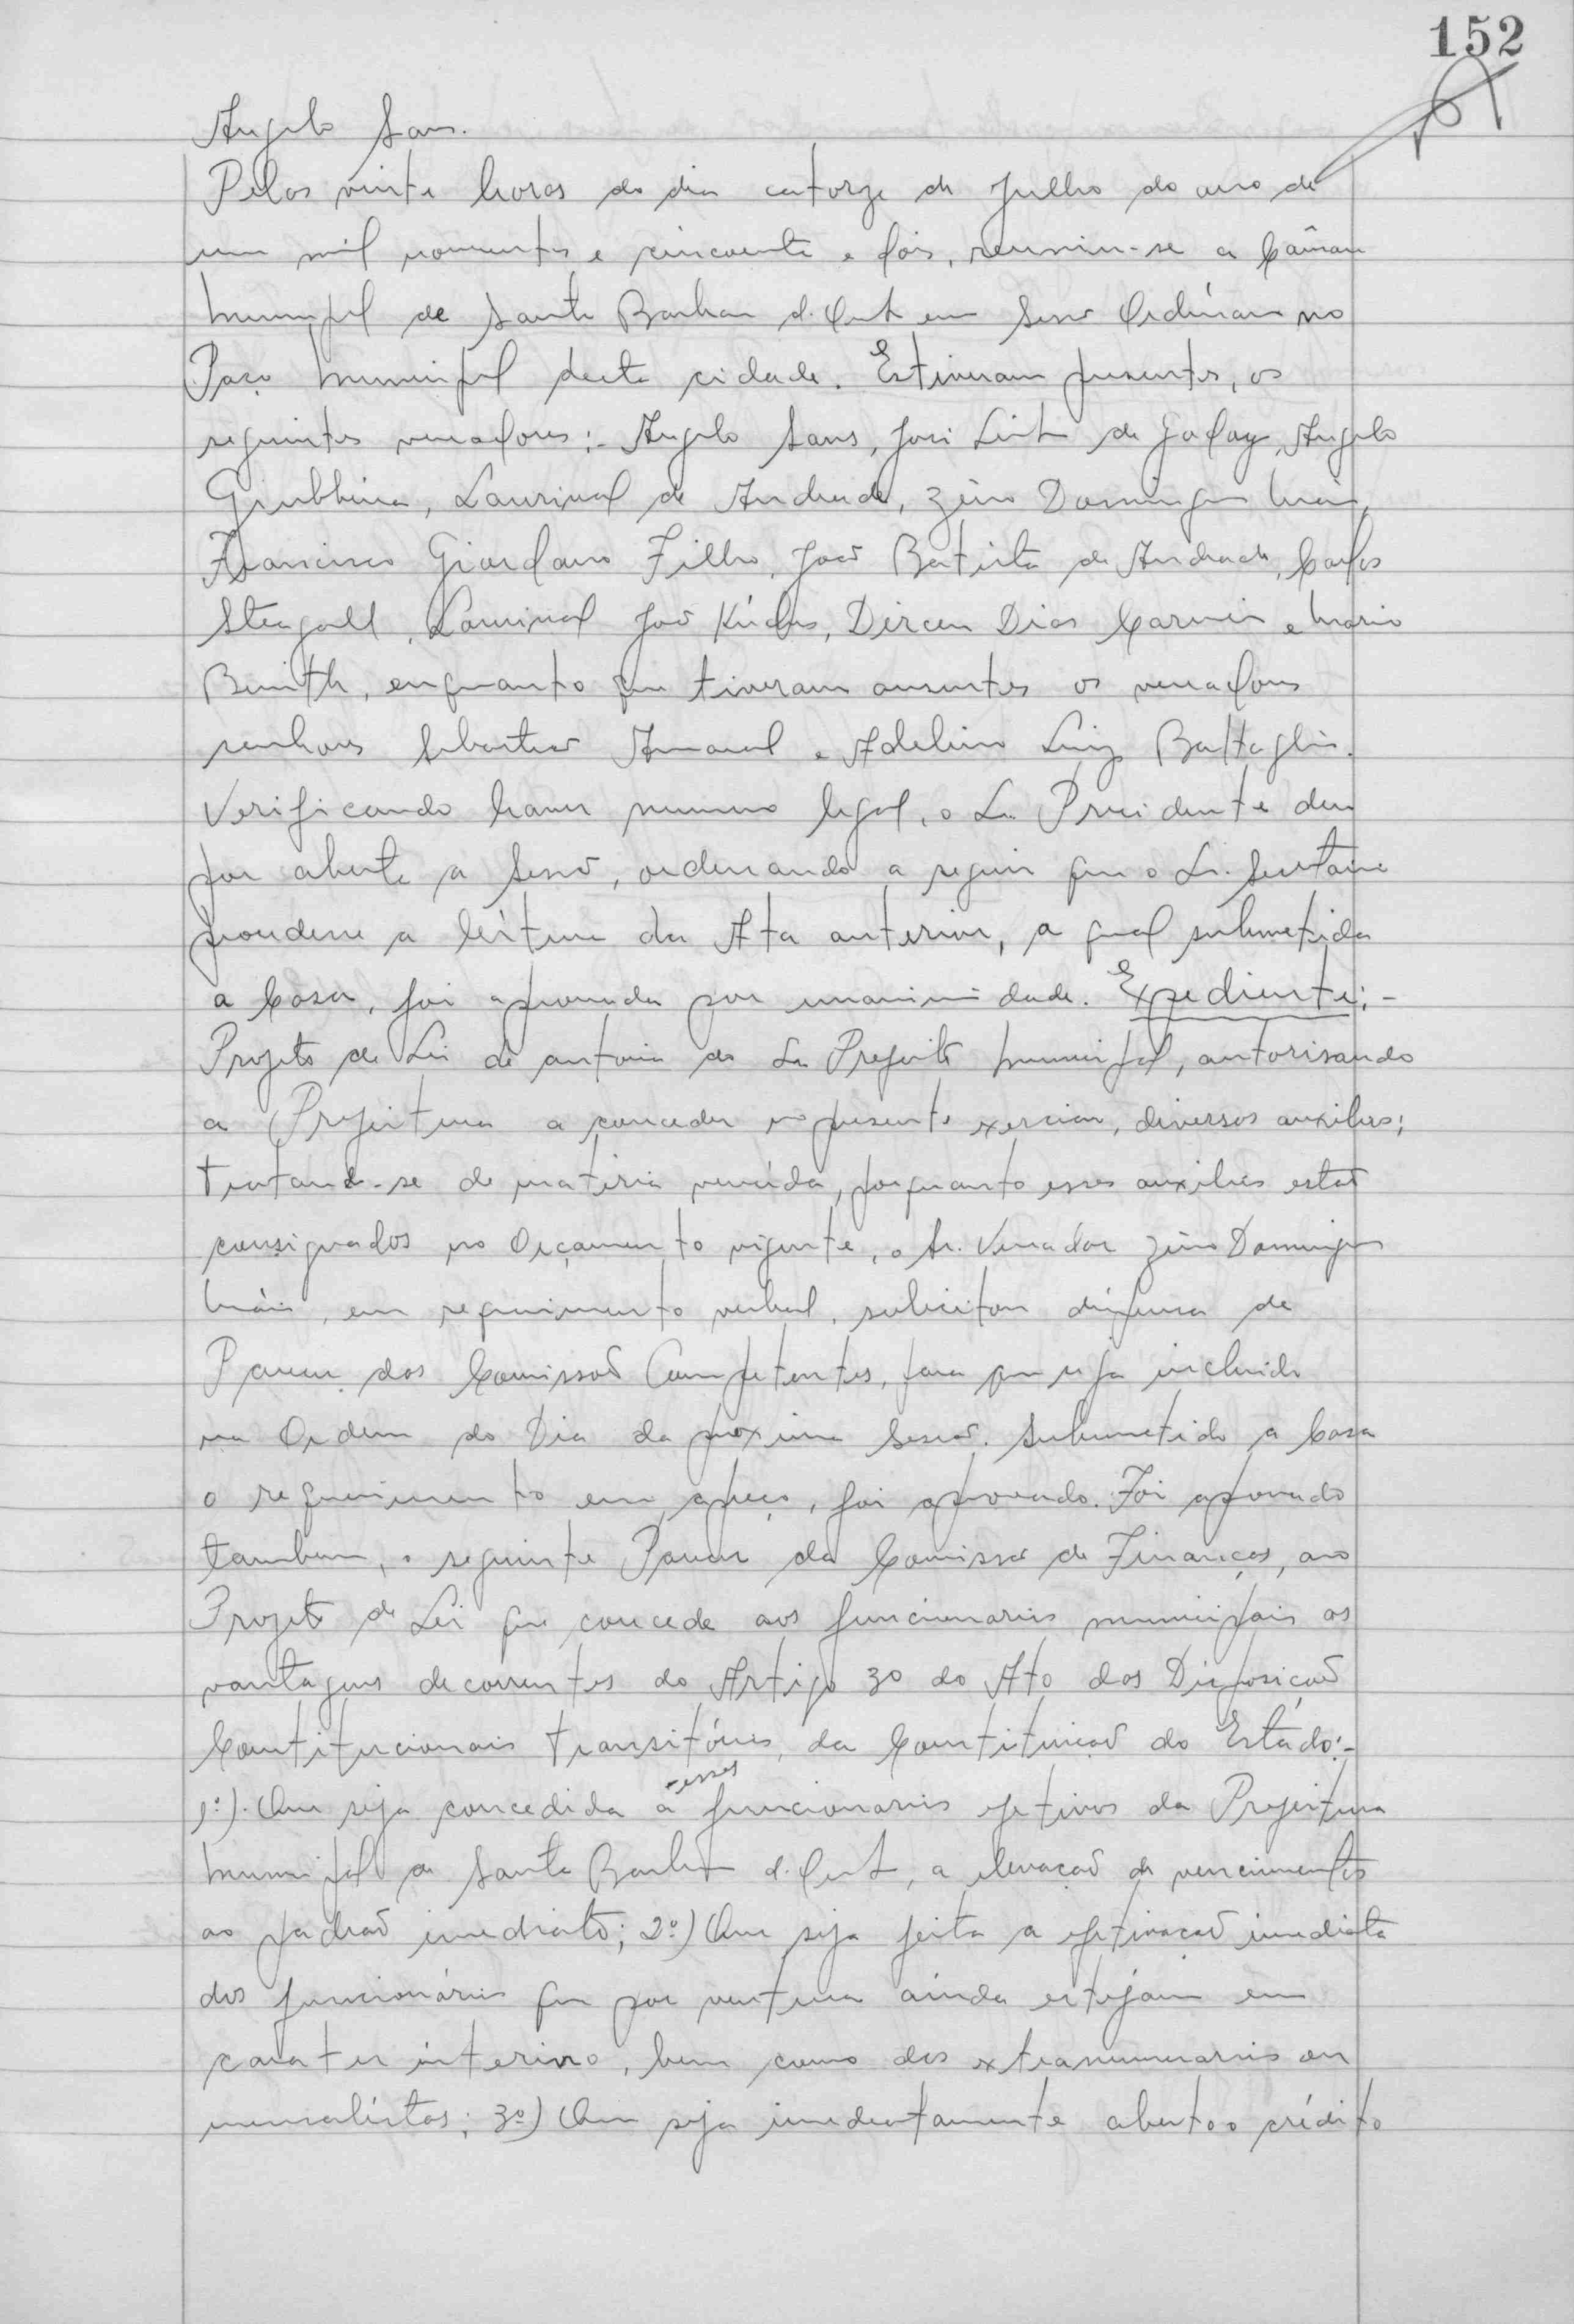 152
Angelo Sans.
Pelas vinte horas do dia catorze de Julho do ano de
um mil novecentos e cincoenta e dois, reuniu-se a Câmara
Municipal de Santa Barbara d'Oeste em Sessão Ordinária no
Paço Municipal desta cidade. Estiveram presentes, os
seguintes vereadores:- Angelo Sans, José Leite de Godoy, Angelo
Giubbina, Laurival de Andrade, Zeno Domingos Maia,
Francisco Giordano Filho, João Batista de Andrade, Carlos
Steagall, Lourival José Dirceu Dias Carneiro e Mario
enquanto que tiveram ausentes os vereadores
senhores Sebastião Amaral e Adelino Luiz Battaglia.
Verificando haver numero legal, o Sr. Presidente deu
por aberta a Sessão, ordenando a seguir que o Sr. Secretário
procedesse a leitura da Ata anterior, a qual submetida
a Casa, foi aprovada por unanimidade. Expediente:-
Projeto de Lei de autoria do Sr. Prefeito Municipal, autorisando
a Prefeitura a conceder no presente exercicio, diversos auxilios;
tratando-se de matéria vencida, porquanto esses auxilios estão
consignados no Orçamento vigente, o Sr. Vereador Zeno Domingos
Maia, em requerimento verbal, solicitou dispensa de
Parecer das Comissões Competentes, para que seja incluido
na Ordem do Dia da proxima Sessão. Submetido a Casa
o requerimento em apreço, foi aprovado. Foi aprovado
tambem, o seguinte Parecer da Comissão de Finanças, ao
Projeto de Lei que concede aos funcionarios municipais as
vantagens decorrentes do Artigo 30 do Ato das Disposições
Constitucionais Transitórias, da Constituição do Estado:-
1º). Que seja concedida a esses funcionarios efetivos da Prefeitura
Municipal de Santa Barbara d'Oeste, a elevação de vencimentos
ao padrão imediato; 2º) Que seja feita a efetivação imediata
dos funcionários que por ventura ainda estejam em
carater interino, bem como dos extranumerarios ou
mensalistas; 3º) Que seja imediatamente aberto o crédito